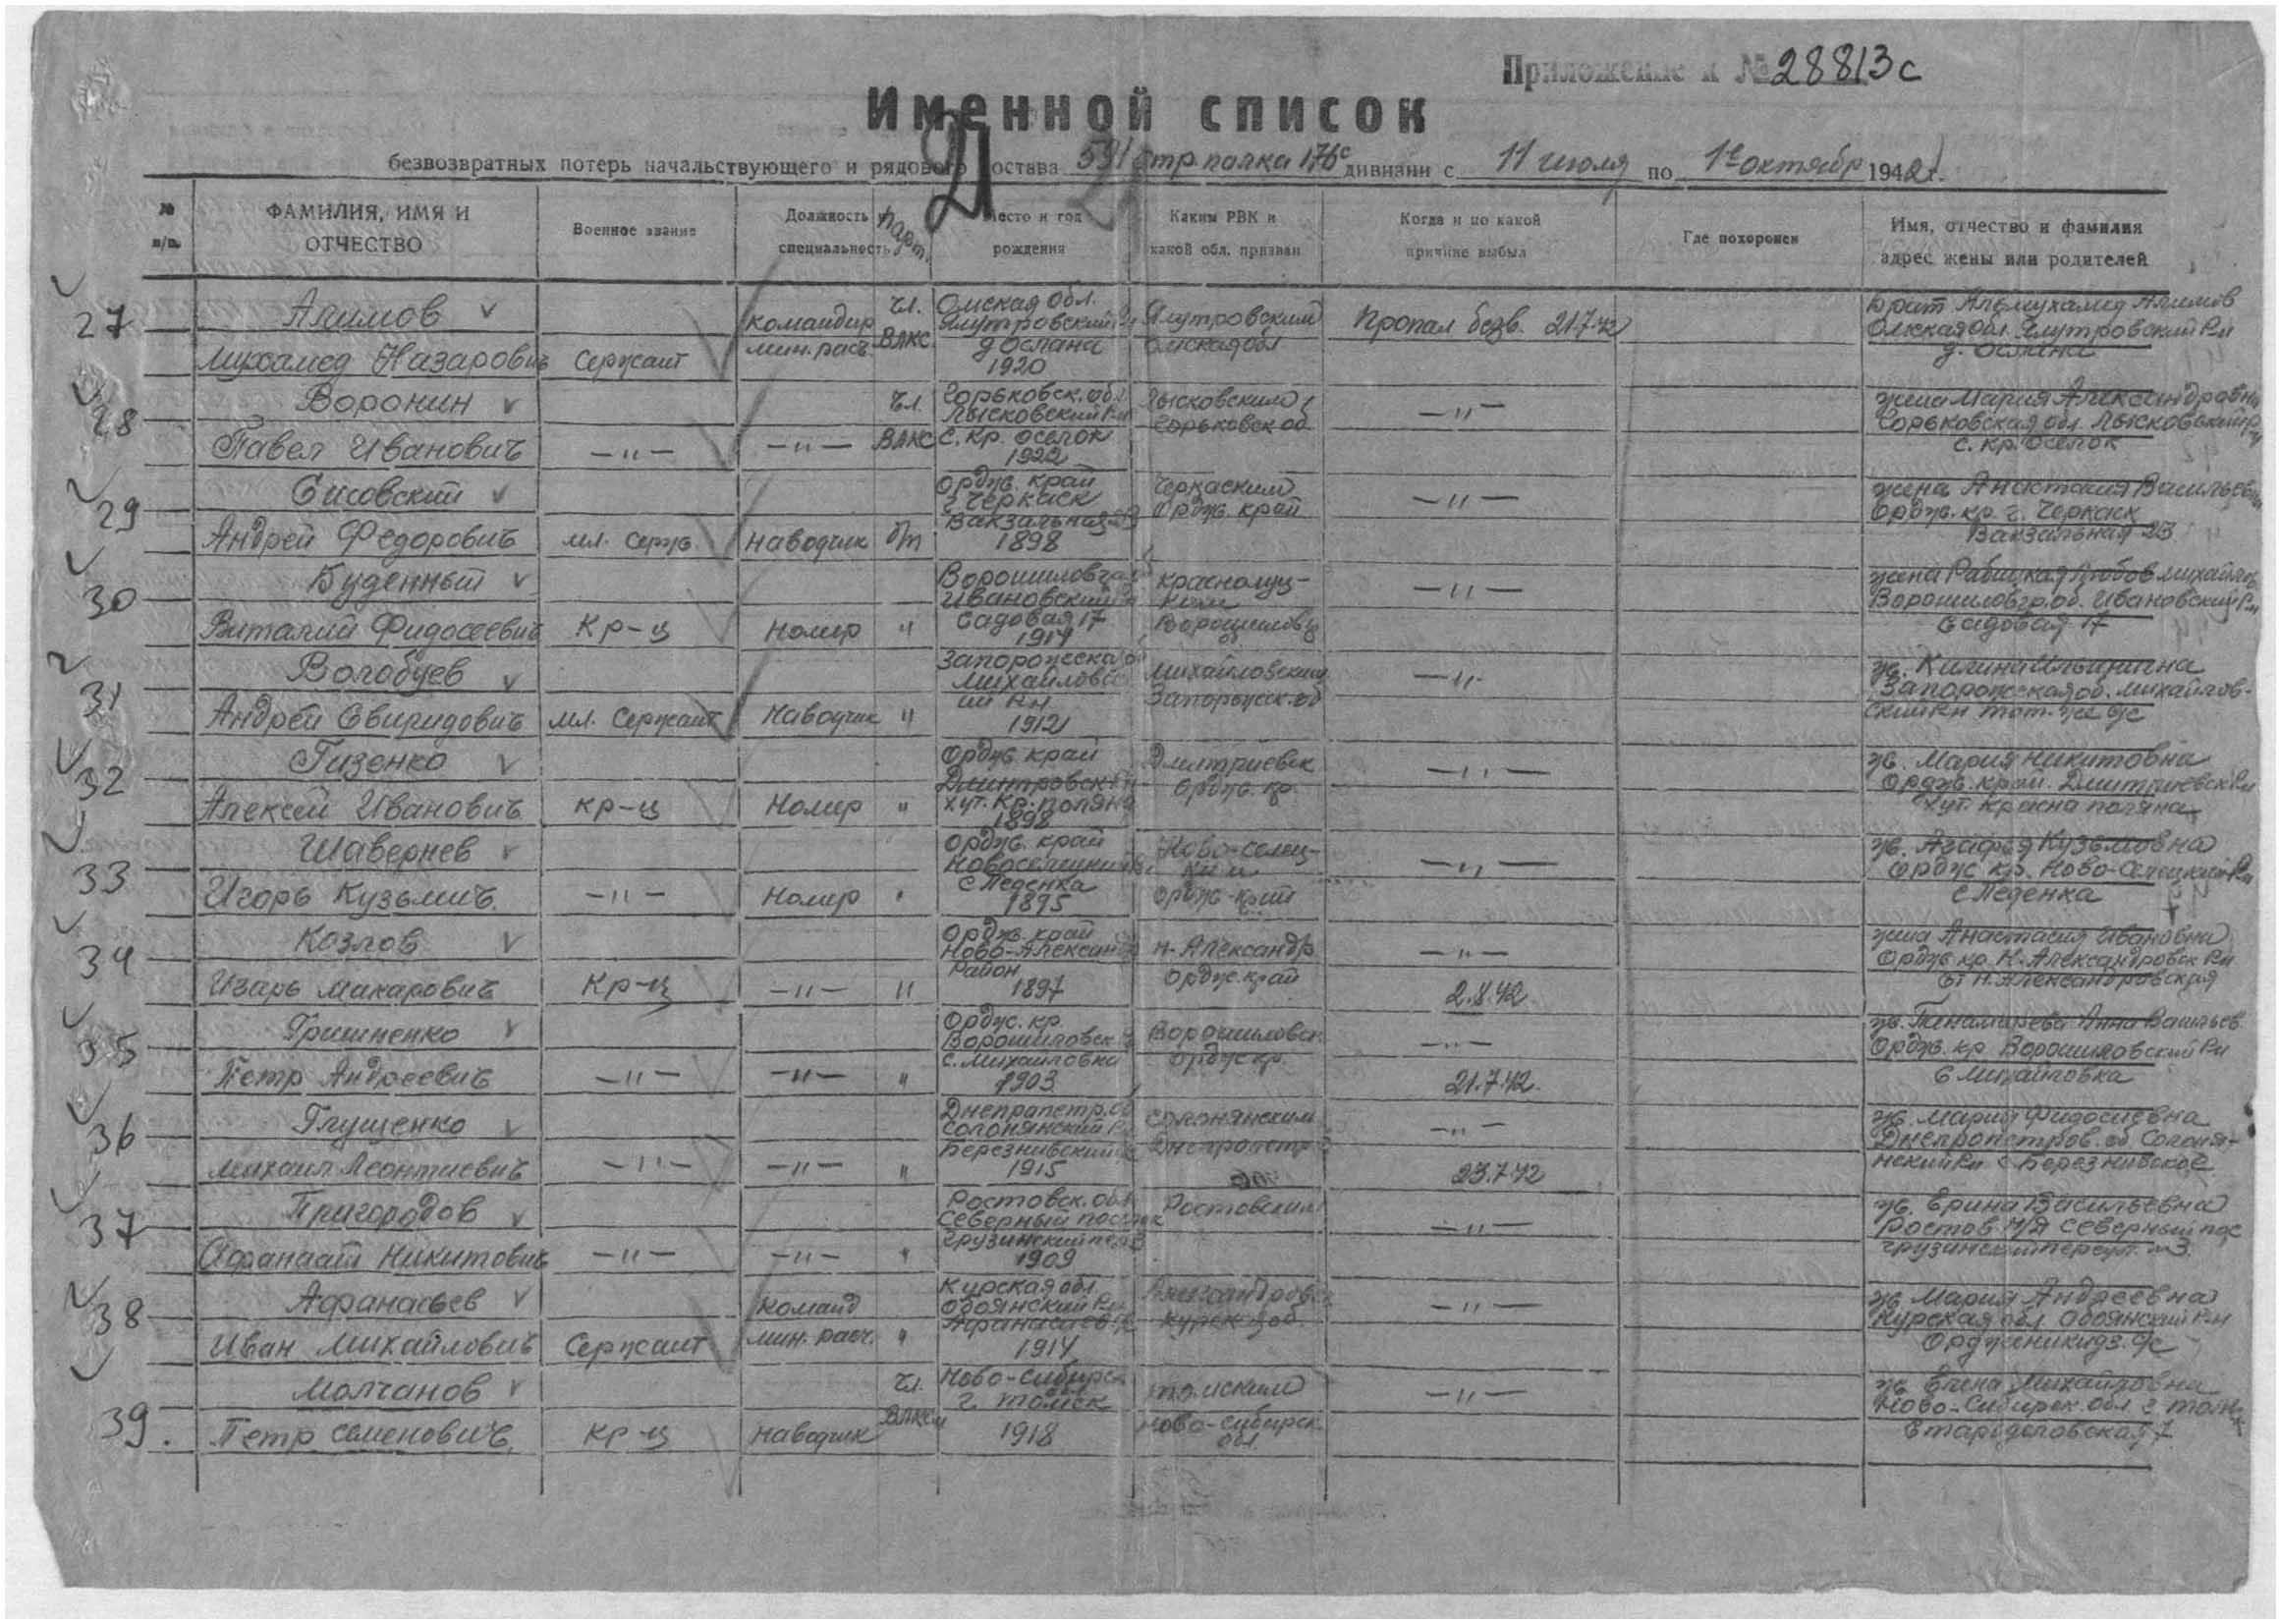 Приложение к № 28813с
Именной список
21
безвозвратных потерь начальствующего и рядового состава 591 стр. полка 176 с дивизии с 11 июля по 1е октябр 1942 г.
№ п/п.
ФАМИЛИЯ, ИМЯ И ОТЧЕСТВО
Военное звание
Должность и специальность
Парт.
Место и год рождения
Каким РВК и какой обл. призван
Когда и по какой причине выбыл
Где похоронен
Имя, отчество и фамилия адрес жены или родителей
27
Алимов
Мухамед Назарович
Сержант
Командир
мин. расч.
чл.
ВЛКС
Омская обл.
Ялутровский Рн
д Ослана
1920
Ялутровским
Омская обл
Пропал безв. 21.7.42
Брат Алимов
Омская обл. Ялутровский Рн
28
Воронин
Павел Иванович
—"—
—"—
чл.
ВЛКС
Горьковск. обл
Лысковский Рн
с. Кр. Оселок
1922
Лысковским
Горьковск об
—"—
жена Мария Александровна
Горьковская обл. Лысковский Р-н
с. Кр. Оселок
29
Андрей Федорович
мл. серж.
Наводчик
б/п
Ордж. край
г Черкаск
Вакзальная 23
1898
Черкаским
Ордж. край
—"—
жена Васильевна
Ордж. кр. г. Черкаск
Вакзальная 23
30
Буденный
Виталий Фидосеевич
Кр-ц
Номер
"
Ворошиловгр
Ивановский
Садовая 17
1914
Краснолуц-
ким
—"—
жена Любов Михайлов
Ворошиловгр. об. Ивановский Рн
Садовая 17
31
Волобуев
Андрей Свиридович
мл. Сержант
Наводчик
"
Запорожская
Михайловс
1912
Михайловским
Запорожск. об
—"—
Запорожская об. Михайлов-
ский Рн тот-же с/с
32
Гизенко
Алексей Иванович
Кр-ц
Номер
"
Ордж край
Дмитровск Рн
хут. Кр. поляна
1898
Дмитриевск
Ордж. кр.
—"—
ж. Мария Никитовна
Ордж. край. Дмитриевск Рн
хут. Красна поляна
33
Шавернев
Игорь Кузьмич
—"—
Номер
"
Ордж. край
с Леденка
1895
Ново-Селец-
ким
Ордж-край
—"—
ж. Кузьмовна
Ордж кр. Ново-Селецкий Рн
с Леденка
34
Козлов
Изарь Макарович
Кр-ц
—"—
"
Ордж. край
Ново-Александр
Район
1897
Н-Александр
Ордж. край
—"—
2.8.42.
жена Анастасия Ивановна
Ордж кр. Н. Александровск Рн
ст Н. Александровская
35
Гришненко
Петр Андреевич
—"—
—"—
"
Ордж. кр.
Ворошиловск
с. Михайловка
1903
Ворошиловск.
Ордж кр.
—"—
21.7.42.
ж. Анна Васильев.
Ордж. кр Ворошиловский Рн
с Михайловка
36
Глущенко
Михаил Леонтиевич
—"—
—"—
"
Днепрапетр. об
Солонянский Р
1915
Солонянским
Днепропетр
—"—
23.7.42
ж. Мария Фидосиевна
Днепропетров. об Солоня-
нский Рн с Березнивское
37
Пригородов
Афанаий Никитович
—"—
—"—
"
Ростовск. обл
Северный поселк
1909
Ростовским
—"—
ж. Ерина Васильевна
Ростов н/Д Северный пос
38
Афанасьев
Иван Михайлович
Сержант
Команд
мин. расч.
"
Курская обл
Обоянский Рн
1914
Курск. об.
—"—
ж Мария Андреевна
Курская обл Обоянский Рн
Орджоникидз. с/с
39.
Молчанов
Петр Семенович
Кр-ц
Наводчик
чл.
ВЛКСм
Ново-Сибирск
г. Томск
1918
Томским
Ново-Сибирск.
обл.
—"—
ж. Елена Михайловна
Ново-Сибирск. обл г Томск